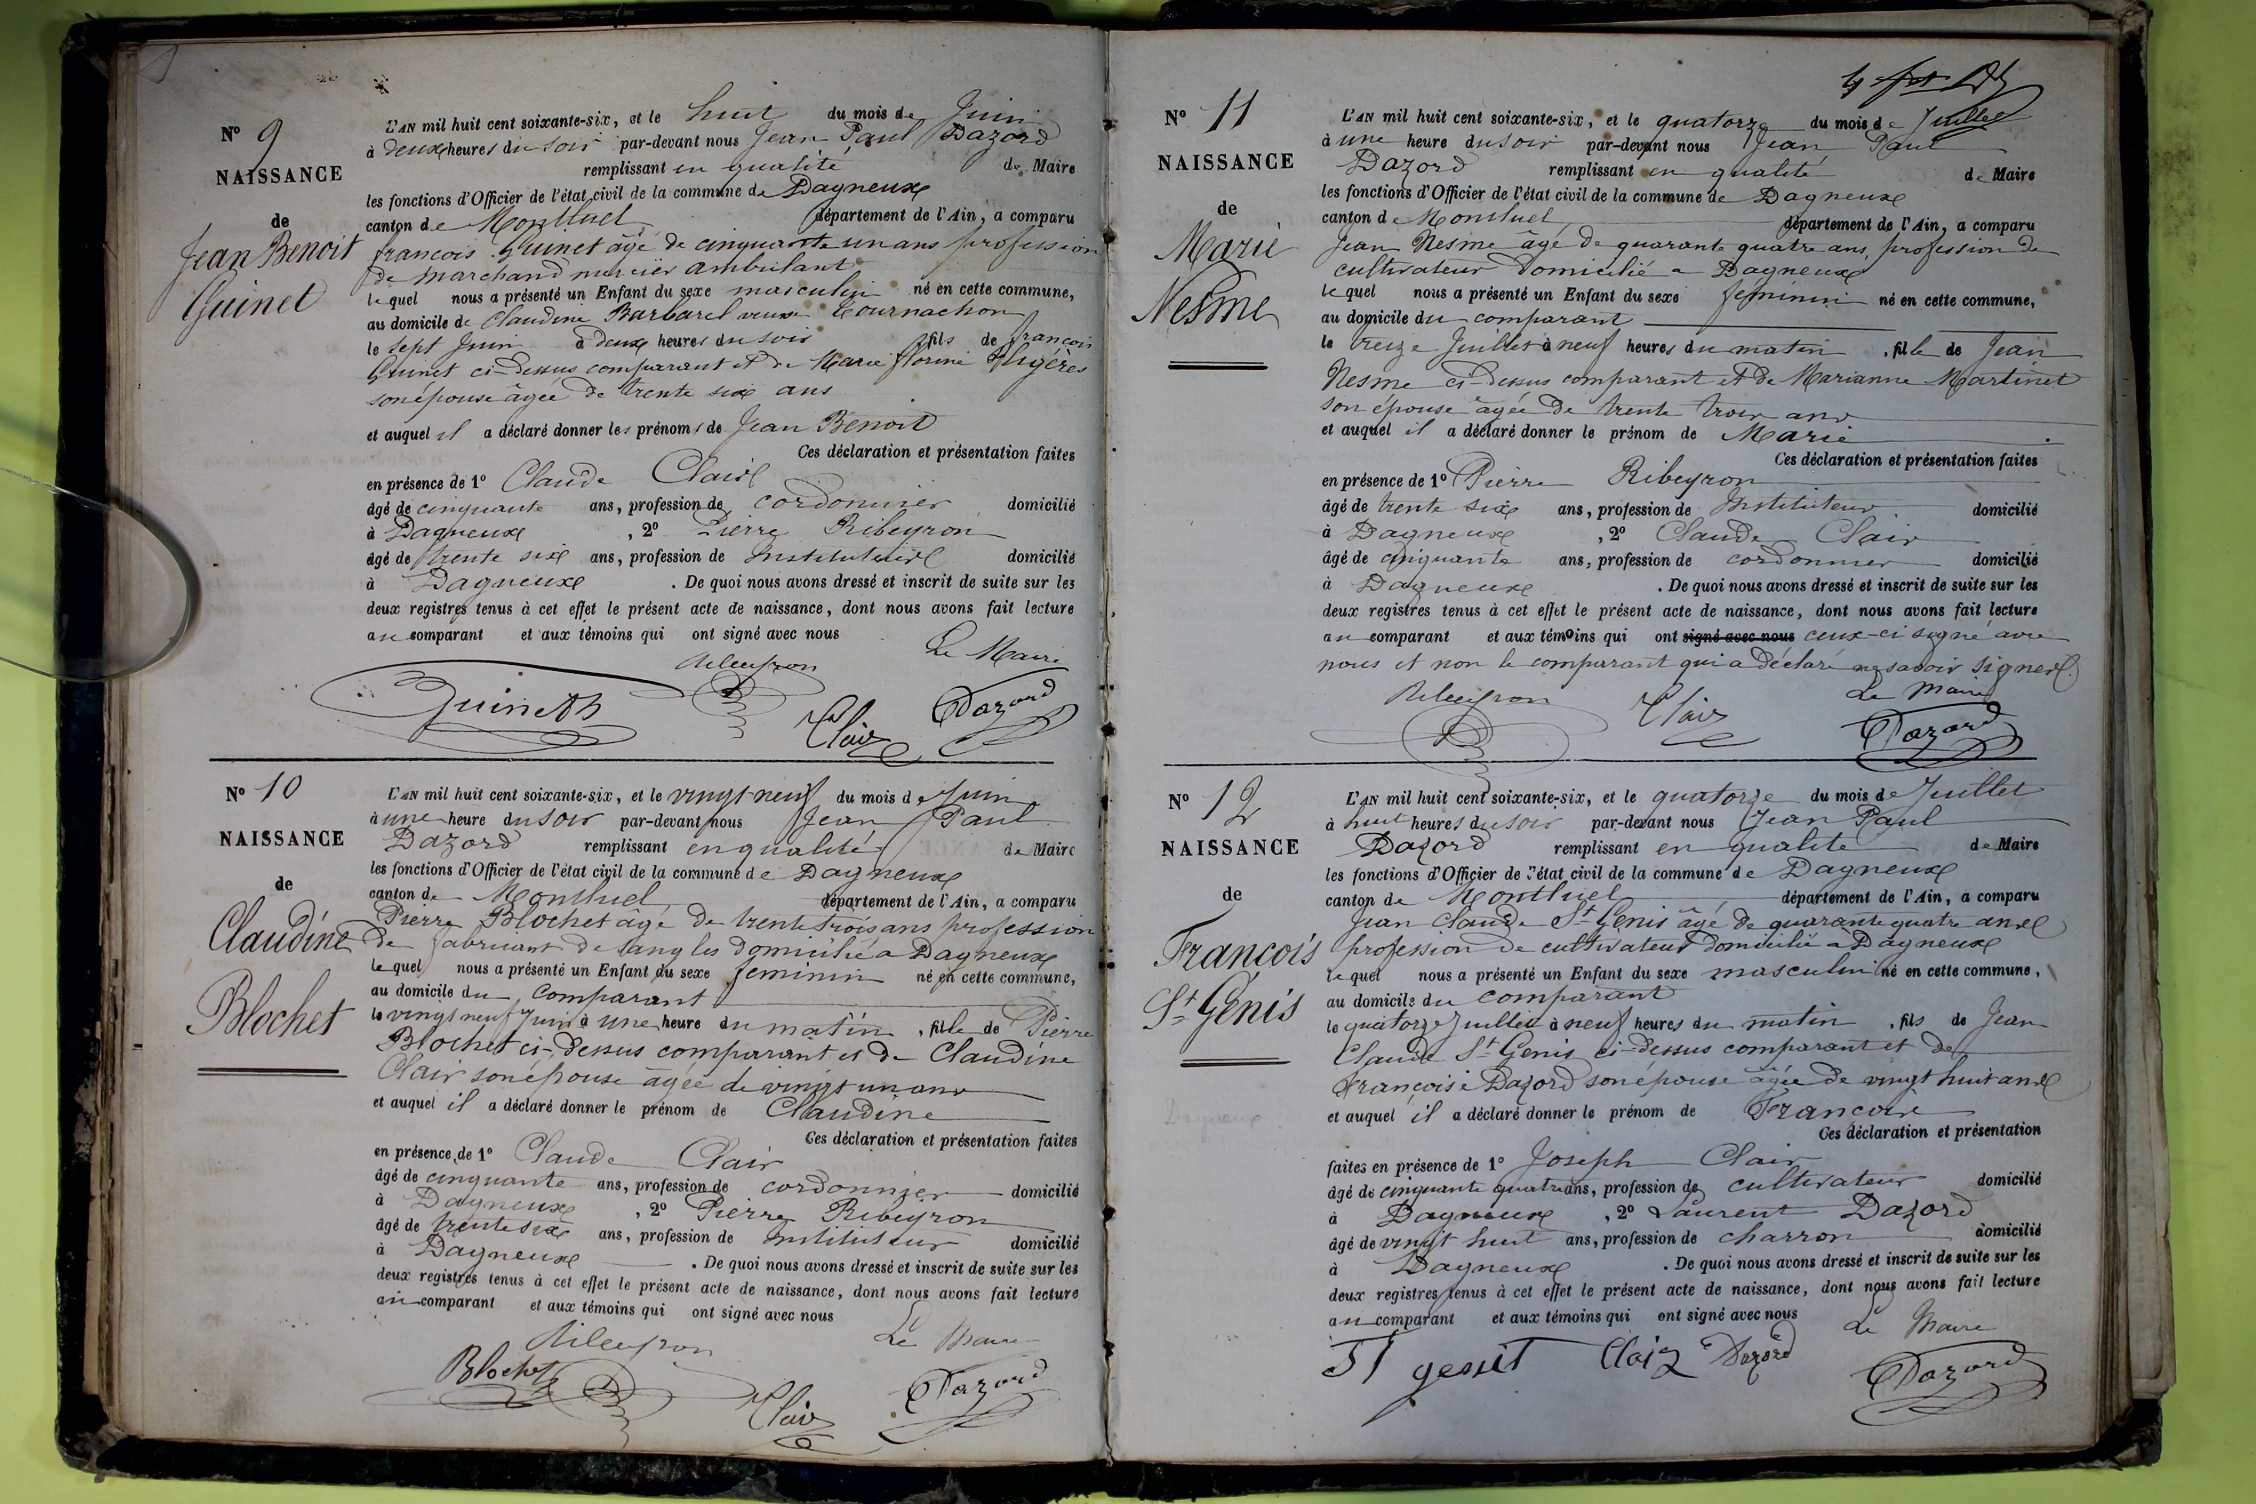 N° 9
NAISSANCE
de
Jean Benoit
Guinet
L'AN mil huit cent soixante-six, et le huit du mois de Juin
à deux heures du soir par-devant nous Jean Paul Dazord
remplissant en qualité de Maire
les fonctions d'Officier de l'état civil de la commune de Dagneux
canton de Montluel département de l'Ain, a comparu
françois Guinet âgé de cinquante un ans profession
de marchand mercier ambulant
lequel nous a présenté un Enfant du sexe masculin né en cette commune,
au domicile de Claudine Barbarel veuve Tournachon
le sept Juin à deux heures du soir, fils de françois
Guinet ci-dessus comparant et de Marie florine
son épouse âgée de trente six ans
et auquel il a déclaré donner les prénoms de Jean Benoit
Ces déclaration et présentation faites
en présence de 1° Claude Clair
âgé de cinquante ans, profession de cordonnier domicilié
à Dagneux, 2° Pierre Ribeyron
âgé de trente six ans, profession de Instituteur domicilié
à Dagneux. De quoi nous avons dressé et inscrit de suite sur les
deux registres tenus à cet effet le présent acte de naissance, dont nous avons fait lecture
au comparant et aux témoins qui ont signé avec nous
Le Maire
Ribeyron
Guineth
Clair
Dazord
N° 10
NAISSANCE
de
Claudine
Blochet
L'AN mil huit cent soixante-six, et le vingt neuf du mois de Juin
à une heure du soir par-devant nous Jean Paul
Dazord remplissant en qualité de Maire
les fonctions d'Officier de l'état civil de la commune de Dagneux
canton de Montluel département de l'Ain, a comparu
Pierre Blochet âgé de trente trois ans profession
de fabricant de sangles domicilié à Dagneux
lequel nous a présenté un Enfant du sexe feminin né en cette commune,
au domicile du comparant
le vingt neuf Juin à une heure du matin, fille de Pierre
Blochet ci-dessus comparant et de Claudine
Clair son épouse âgée de vingt un ans
et auquel il a déclaré donner le prénom de Claudine
Ces déclaration et présentation faites
en présence de 1° Claude Clair
âgé de cinquante ans, profession de cordonnier domicilié
à Dagneux, 2° Pierre Ribeyron
âgé de trente six ans, profession de Instituteur domicilié
à Dagneux. De quoi nous avons dressé et inscrit de suite sur les
deux registres tenus à cet effet le présent acte de naissance, dont nous avons fait lecture
au comparant et aux témoins qui ont signé avec nous
Ribeyron Le Maire
Blochet
Clair
Dazord
N° 11
NAISSANCE
de
Marie
Nesme
L'AN mil huit cent soixante-six, et le quatorze du mois de Juillet
à une heure du soir par-devant nous Jean Paul
Dazord remplissant en qualité de Maire
les fonctions d'Officier de l'état civil de la commune de Dagneux
canton de Montluel département de l'Ain, a comparu
Jean Nesme âgé de quarante quatre ans, profession de
cultivateur domicilié à Dagneux
lequel nous a présenté un Enfant du sexe féminin né en cette commune,
au domicile du comparant
le treize Juillet à neuf heures du matin, fille de Jean
Nesme ci-dessus comparant et de Marianne Martinet
son épouse âgée de trente trois ans
et auquel il a déclaré donner le prénom de Marie.
Ces déclaration et présentation faites
en présence de 1° Pierre Ribeyron
âgé de trente six ans, profession de Instituteur domicilié
à Dagneux, 2° Claude Clair
âgé de cinquante ans, profession de cordonnier domicilié
à Dagneux. De quoi nous avons dressé et inscrit de suite sur les
deux registres tenus à cet effet le présent acte de naissance, dont nous avons fait lecture
au comparant et aux témoins qui ont signé avec nous ceux-ci signé avec
nous et non le comparant qui a déclaré ne savoir signer.
Ribeyron
Clair
Le Maire
Dazord
N° 12
NAISSANCE
de
François
St Genis
L'AN mil huit cent soixante-six, et le quatorze du mois de Juillet
à huit heures du soir par-devant nous Jean Paul
Dazord remplissant en qualité de Maire
les fonctions d'Officier de l'état civil de la commune de Dagneux
canton de Montluel département de l'Ain, a comparu
Jean Claude St Genis âgé de quarante quatre ans
profession de cultivateur domicilié à Dagneux
lequel nous a présenté un Enfant du sexe masculin né en cette commune,
au domicile du comparant
le quatorze Juillet à neuf heures du matin, fils de Jean
Claude St Genis ci-dessus comparant et de
françoise Dazord son épouse âgée de vingt huit ans
et auquel il a déclaré donner le prénom de François
Ces déclaration et présentation
faites en présence de 1° Joseph Clair
âgé de cinquante quatre ans, profession de cultivateur domicilié
à Dagneux, 2° Laurent Dazord
âgé de vingt huit ans, profession de charron domicilié
à Dagneux. De quoi nous avons dressé et inscrit de suite sur les
deux registres tenus à cet effet le présent acte de naissance, dont nous avons fait lecture
au comparant et aux témoins qui ont signé avec nous
Le Maire
St genit Clair Dazord
Dazord